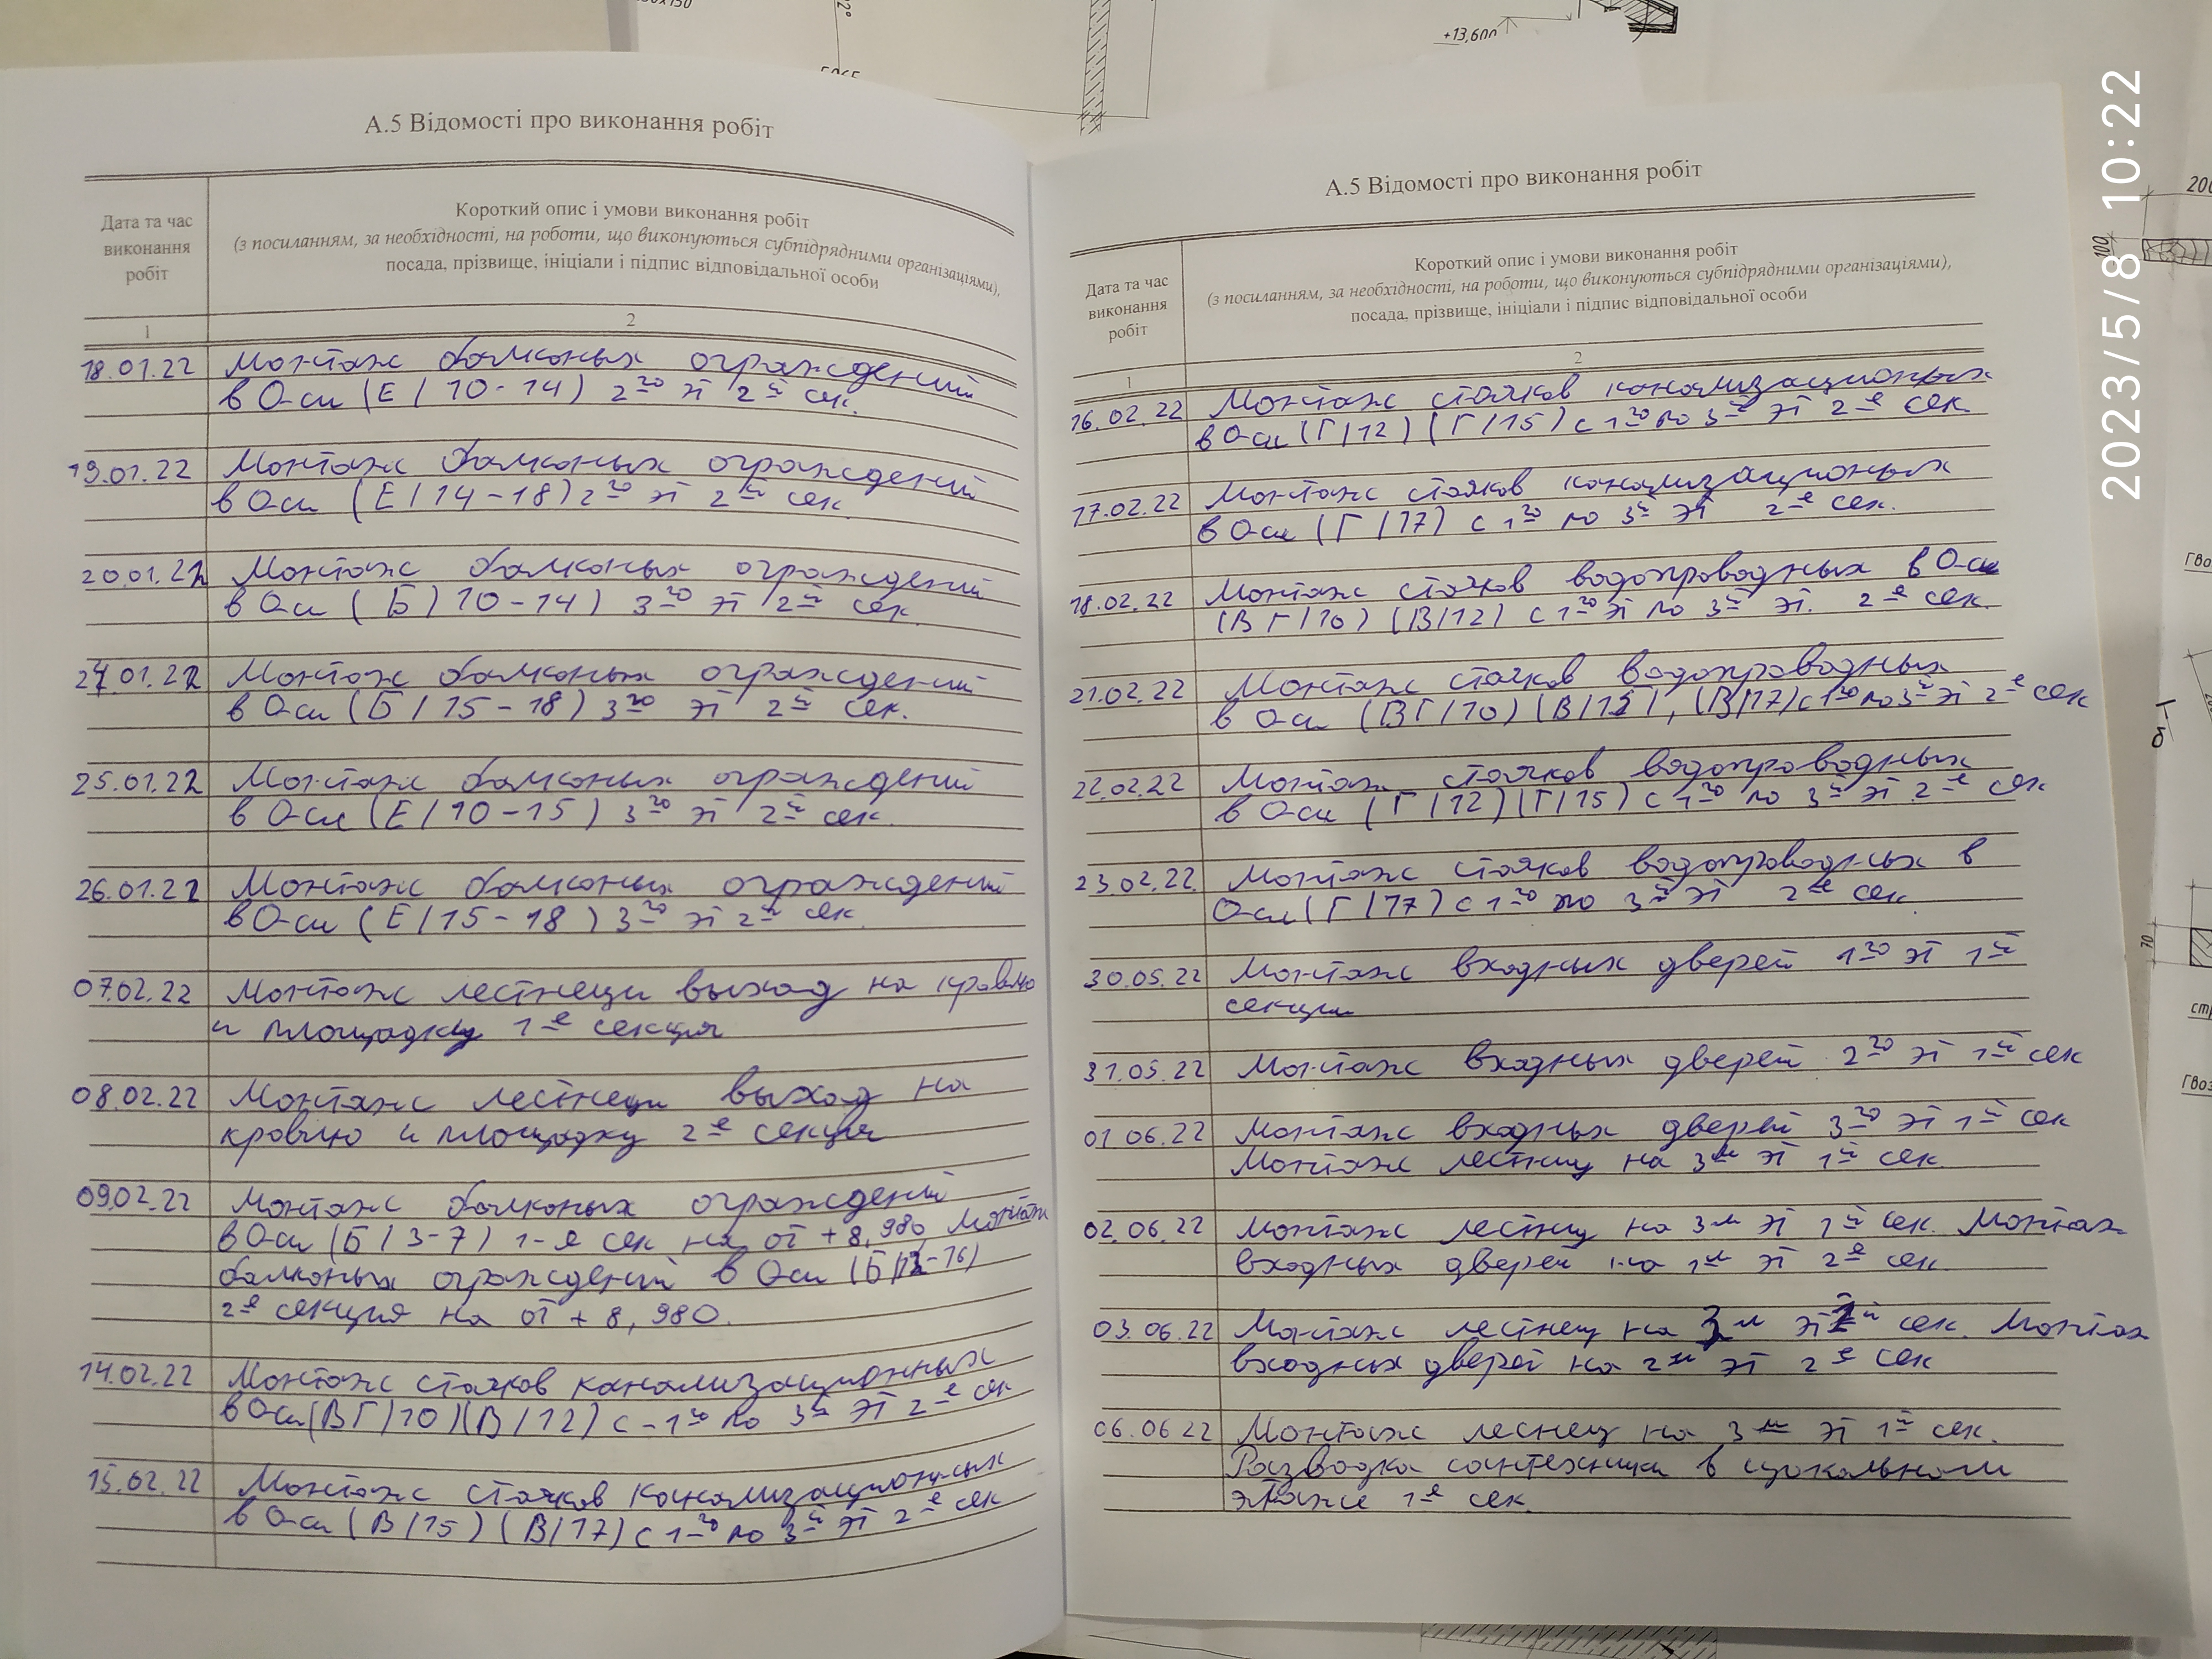 +13,600
А.5 Відомості про виконання робіт
Дата та час
виконання
робіт
Короткий опис і умови виконання робіт
(з посиланням, за необхідності, на роботи, що виконуються субпідрядними організаціями),
посада, прізвище, ініціали і підпис відповідальної особи
1
2
18.01.22 Монтаж балконых ограждений
в Оси (Е/10-14) 2го эт 2й сек.
19.01.22 Монтаж балконых ограждений
в Оси (Е/14-18) 2го эт 2й сек
20.01.22 Монтаж балконых ограждений
в Оси (Б) 10-14) 3го эт 2й сек.
24.01.22 Монтаж балконых ограждений
в Оси (Б/15-18) 3го эт 2й сек.
25.01.22 Монтаж балконых ограждений
в Оси (Е/10-15) 3го эт 2й сек.
26.01.22 Монтаж балконых ограждений
в Оси (Е/15-18) 3го эт 2й сек.
07.02.22 Монтаж лестнеци выход на кровлю
и площадку 1-е секция
08.02.22 Монтаж лестнеци выход на
кровлю и площадку 2-е секция
09.02.22 Монтаж балконых ограждений
в Оси (Б/3-7) 1-я сек на от +8,980, Монтаж
балконых ограждений в Оси (Б/ -16)
2-е секция на от +8,980.
14.02.22 Монтаж стояков канализационных
в Оси (ВГ/10) (В/12) с-1го по 3й эт 2-е сек
15.02.22 Монтаж стояков канализационых
в Оси (В/15) (В/17) с 1-го по 3й эт 2-е сек
А.5 Відомості про виконання робіт
Дата та час
виконання
робіт
Короткий опис і умови виконання робіт
(з посиланням, за необхідності, на роботи, що виконуються субпідрядними організаціями),
посада, прізвище, ініціали і підпис відповідальної особи
1
2
16.02.22 Монтаж стояков канализационых
в Оси (Г/12) (Г/15) с 1го по 3й эт 2-е сек.
17.02.22 Монтаж стояков канализационых
в Оси (Г/17) с 1го по 3й эт 2-е сек.
18.02.22 Монтаж стояков водопроводных в Оси
(ВГ/10) (В/12) с 1го эт по 3й эт. 2-е сек.
21.02.22 Монтаж стояков водопроводных
в Оси (ВГ/10) (В/15), (В/17) с 1го по 3й эт 2-е сек
22.02.22 Монтаж стояков водопроводных
в Оси (Г/12) (Г/15) с 1го по 3й эт 2-е сек
23.02.22. Монтаж стояков водопроводных в
Оси (Г/17) с 1го по 3й эт 2-е сек
30.05.22 Монтаж входных дверей 1го эт 1й
секции
31.05.22 Монтаж входных дверей 2го эт 1й сек
01.06.22 Монтаж входных дверей 3го эт 1й сек
Монтаж лестниц на 3м эт 1й сек
02.06.22 Монтаж лестниц на 3м эт 1й сек. Монтаж
входных дверей на 1м эт 2-е сек.
03.06.22 Монтаж лестнец на 3м эт й сек. Монтаж
входных дверей на 2м эт 2-е сек
06.06.22 Монтаж леснец на 3м эт 1й сек.
Разводка сантехники в цокольном
этаже 1-е сек.
2023/5/8 10:22
200
100
70